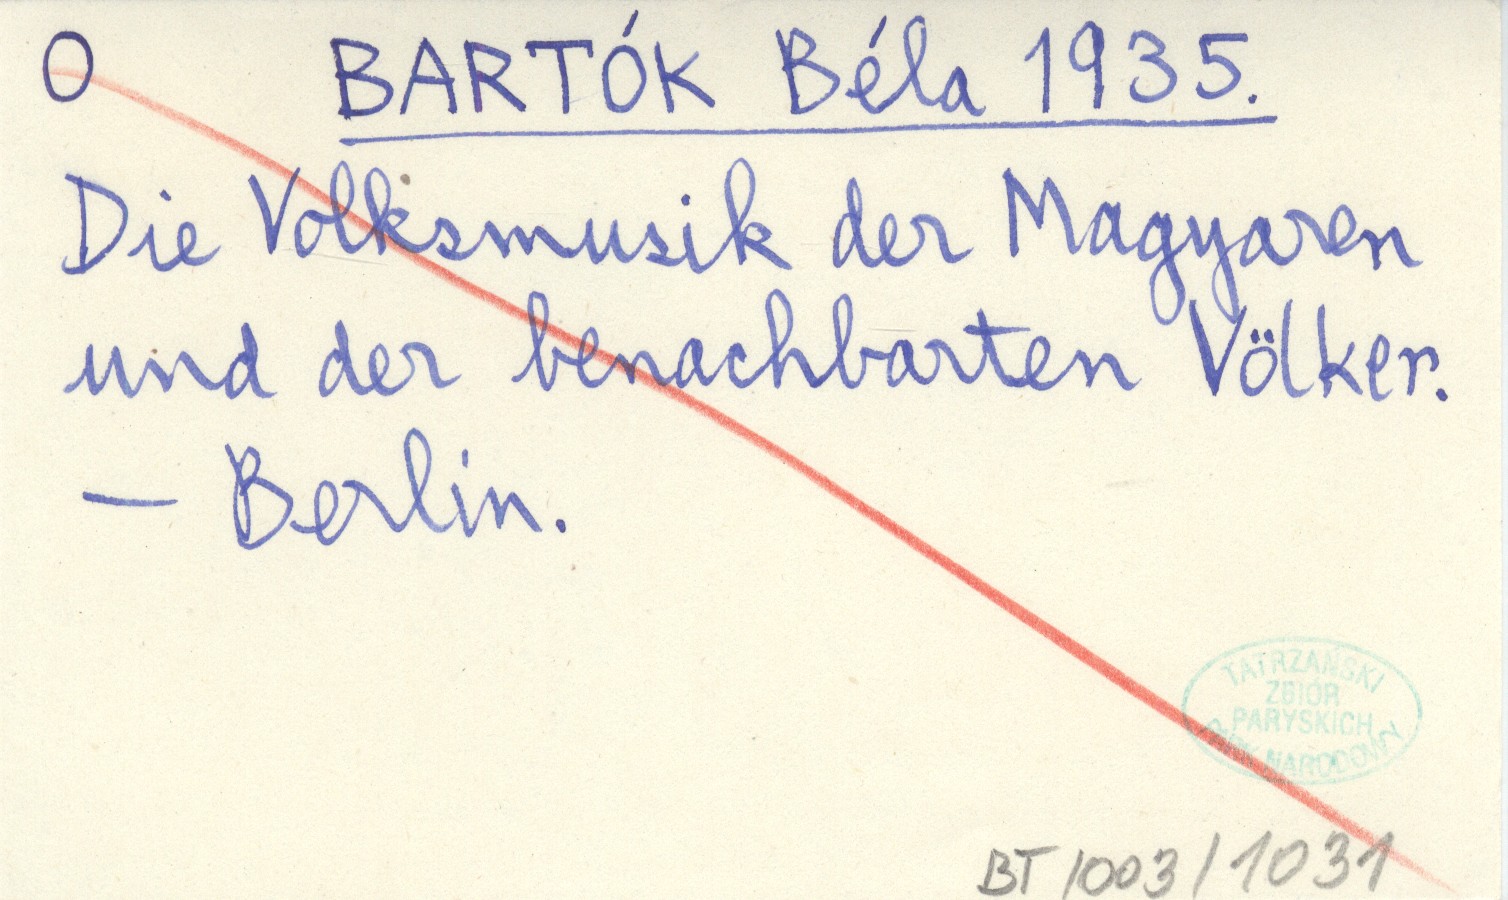 O BARTÓK Béla 1935.
Die Volksmusik der Magyaren
und der benachbarten Völker.
— Berlin.
TATRZAŃSKI
ZBIÓR
PARYSKICH
PARK NARODOWY
BT/003/1031